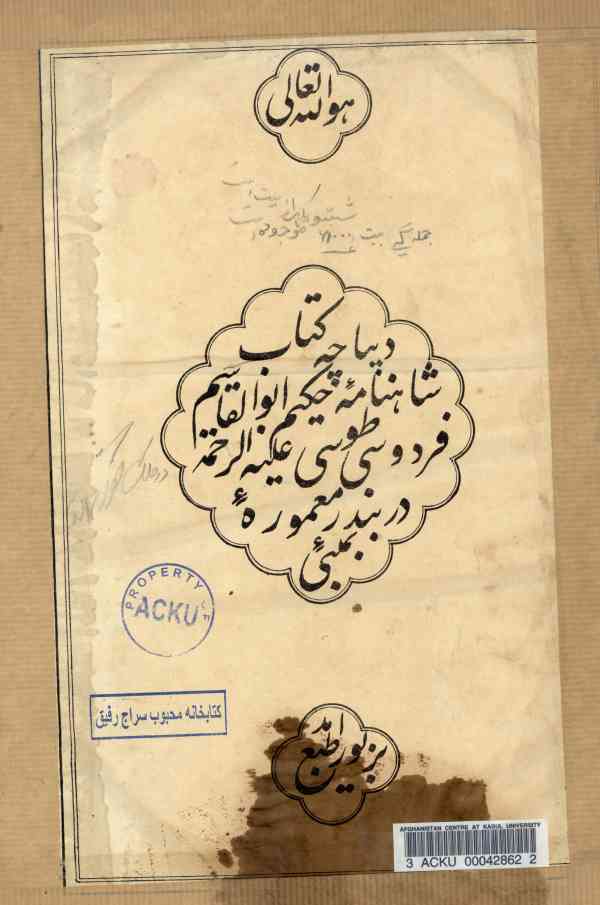 هو الله تعالی
دیباچه کتاب
شاهنامهٔ حکیم ابوالقاسم
فردوسی طوسی علیه الرحمة
در بندر معمورهٔ
بمبئی
PROPERTY OF
ACKU
کتابخانه محبوب سراج رفیق
بزیور طبع آمد
AFGHANISTAN CENTRE AT KABUL UNIVERSITY
3 ACKU 00042862 2